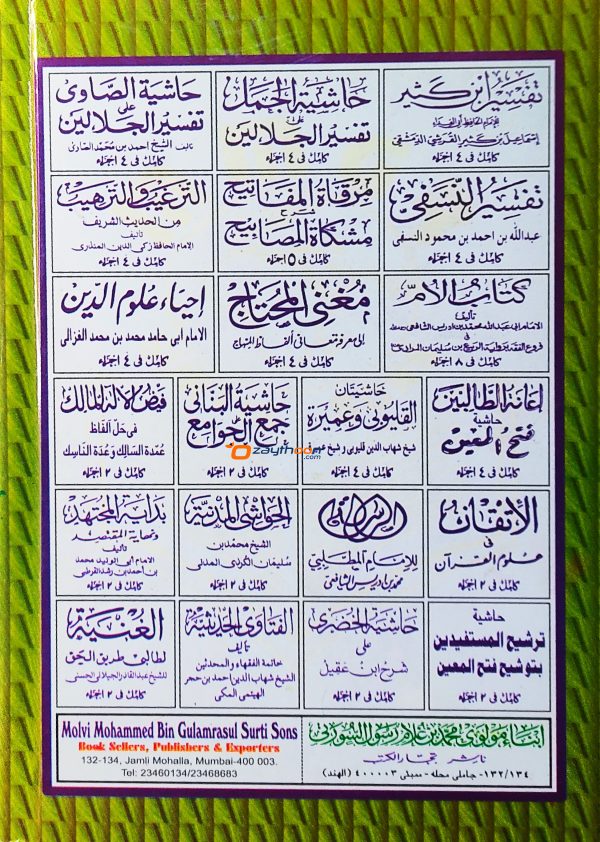 تفسير ابن كثير
للإمام الحافظ أبو الفداء
إسماعيل بن كثير القرشي الدمشقي
كامل فى ٤ اجزاء
حاشية الجمل
على
تفسير الجلالين
كامل فى ٤ اجزاء
حاشية الصاوى
على
تفسير الجلالين
تاليف الشيخ احمد بن محمد الصاوى
كامل فى ٤ اجزاء
تفسير النسفى
عبدالله بن احمد بن محمود النسفى
كامل فى ٤ اجزاء
مرقاة المفاتيح
شرح
مشكاة المصابيح
كامل فى ٥ اجزاء
الترغيب والترهيب
من الحديث الشريف
تأليف
الامام الحافظ زكى الدين المنذرى
كامل فى ٤ اجزاء
كتاب الأم
تأليف
الامام ابى عبدالله محمد بن ادريس الشافعى
فى
فروع الفقه برواية الربيع بن سليمان المرادى
كامل فى ٨ اجزاء
مغنى المحتاج
إلى معرفة معانى ألفاظ المنهاج
كامل فى ٤ اجزاء
إحياء علوم الدين
الامام ابى حامد محمد بن محمد الغزالى
كامل فى ٤ اجزاء
إعانة الطالبين
حاشية
فتح المعين
كامل فى ٤ اجزاء
حاشيتان
القليوبى وعميرة
شيخ شهاب الدين قليوبى و شيخ عميرة
كامل فى ٤ اجزاء
حاشية البنانى
جمع الجوامع
كامل فى ٢ اجزاء
فيض الاله المالك
فى حل الفاظ
عمدة السالك وعدة الناسك
كامل فى ٢ اجزاء
ozayth.com
الإتقان
فى
علوم القرآن
كامل فى ٢ اجزاء
الرسالة
للإمام المطلبى
محمد بن ادريس الشافعى
الحواشى المدنية
الشيخ محمد بن
سليمان الكردى المدنى
كامل فى ٢ اجزاء
بداية المجتهد
ونهاية المقتصد
تأليف
الامام ابى الوليد محمد
بن احمد بن رشد القرطبى
كامل فى ٢ اجزاء
حاشية
ترشيح المستفيدين
بتوشيح فتح المعين
كامل فى ٢ اجزاء
حاشية الخضرى
على
شرح ابن عقيل
كامل فى ٢ اجزاء
الفتاوى الحديثية
تأليف
خاتمة الفقهاء والمحدثين
الشيخ شهاب الدين احمد بن حجر
الهيتمى المكى
الغنية
لطالبى طريق الحق
للشيخ عبدالقادر الجيلانى الحسنى
كامل فى ٢ اجزاء
Molvi Mohammed Bin Gulamrasul Surti Sons
Book Sellers, Publishers & Exporters
132-134, Jamli Mohalla, Mumbai-400 003.
Tel: 23460134/23468683
ابناء مولوى محمد بن غلام رسول السورتى
ناشر تجار الكتب
١٣٢/١٣٤- جاملى محله - ممبئى ٤٠٠٠٠٣ (الهند)